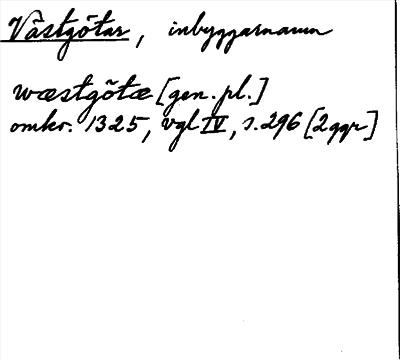 Västgötar, inbyggarnamn
wæstgötæ [gen. pl.]
omkr. 1325, Vgl IV, s. 296 [2 ggr]